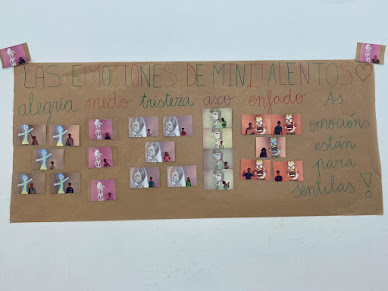 LAS EMOCIONES DE MINITALENTOS
alegría miedo tristeza asco enfado
As emocións están para sentilas!